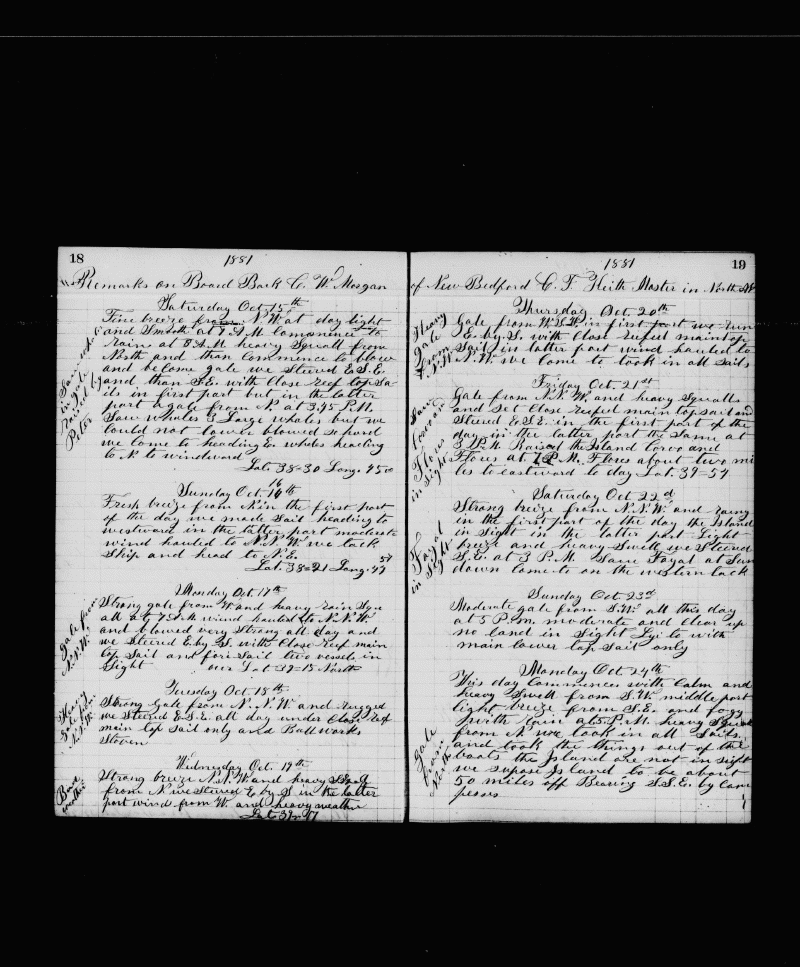 18
1881
Remarks on Board Bark C. W. Morgan
Saturday Oct 15th
Fine breeze from N.W. at day light
and Smooth at 7 A.M. Commence to
rain at 8 A.M. heavy Squall from
North and than Commence to blow
and become gale we Steered E.S.E.
and than S.E. with Close reef top Sa-
ils in first part but in the latter
part a gale from N. at 3.45 P.M.
Saw whales 3 Large whales but we
Could not lower blowed so hard
we come to heading E. whales heading
to N. to windward
Lat. 38=30 Long. 45
in gale
Raised by
Peter
Sunday Oct. 16th
16
Fresh breize from N. in the first part
of the day we made Sail heading to
westward in the latter part moderate
wind hauled to N.N.W. we tack
Ship and head to N.E.
Lat. 38=21 Long. 47
57
Monday Oct 17th
Strong gale from W. and heavy rain Squ
all at 7 A.M. wind hauled to N.N.W.
and blowed very Strong all day and
we Steered E.by S. with Close Reef main
top Sail and fore Sail two vessels in
Sight our Lat 39=15 North
Gale from
N.N.W.
Tuesday Oct 18th
Strong Gale from N.N.W. and rugged
we Steered E.S.E. all day under Close Reef
main top Sail only and Bullworks
Stoven
Heavy
Gale from
N.N.W.
Wednesday Oct. 19th
Strong breize N.N.W. and heavy
from N. we Steered E. by S. in the latter
part wind from W. and heavy weather
Lat. 39=
Bad
weather
1881
19
of New Bedford C. F. Keith Master in North At
Thursday Oct 20th
Gale from W.S.W. in first part we run
E. by S. with Close reefed maintop
Sail in latter part wind hauled to
N.W. we Come to took in all Sails
Heavy
Gale
from
Friday Oct. 21st
Gale from N.N.W. and heavy Squalls
and Set Close Reefed main top sail and
Steered E.S.E. in the first part of the
day in the latter part the Same at
3 P.M. Raised the Island Corvo and
Flores at 7 P.M. Flores about two mi
les to eastward to day Lat. 39=54
Saw
Corvo and
Flores
in Sight
Saturday Oct 22d
Strong breize from N.N.W. and rainy
in the first part of the day the Island
in Sight in the latter part Light
breize and heavy Swell we Steered
S.E. at 3 P.M. Saw Fayal at Sun
down Come to on the western tack
Fayal
in Sight
Sunday Oct 23d
Moderate gale from S.W. all this day
at 5 P.m. moderate and Clear up
no land in Sight Lyi to with
main lower top Sail only
Monday Oct 24th
This day Commences with Calm and
heavy Swell from S.W. middle part
light breize from S.E. and fogy
with rain at 5. P.M. heavy Squall
from N. we took in all Sails.
and took the things out of the
boats the Island are not in Sight
we supose Island to be about
50 miles off Bearing S.S.E. by Com
passes
Gale
from
North